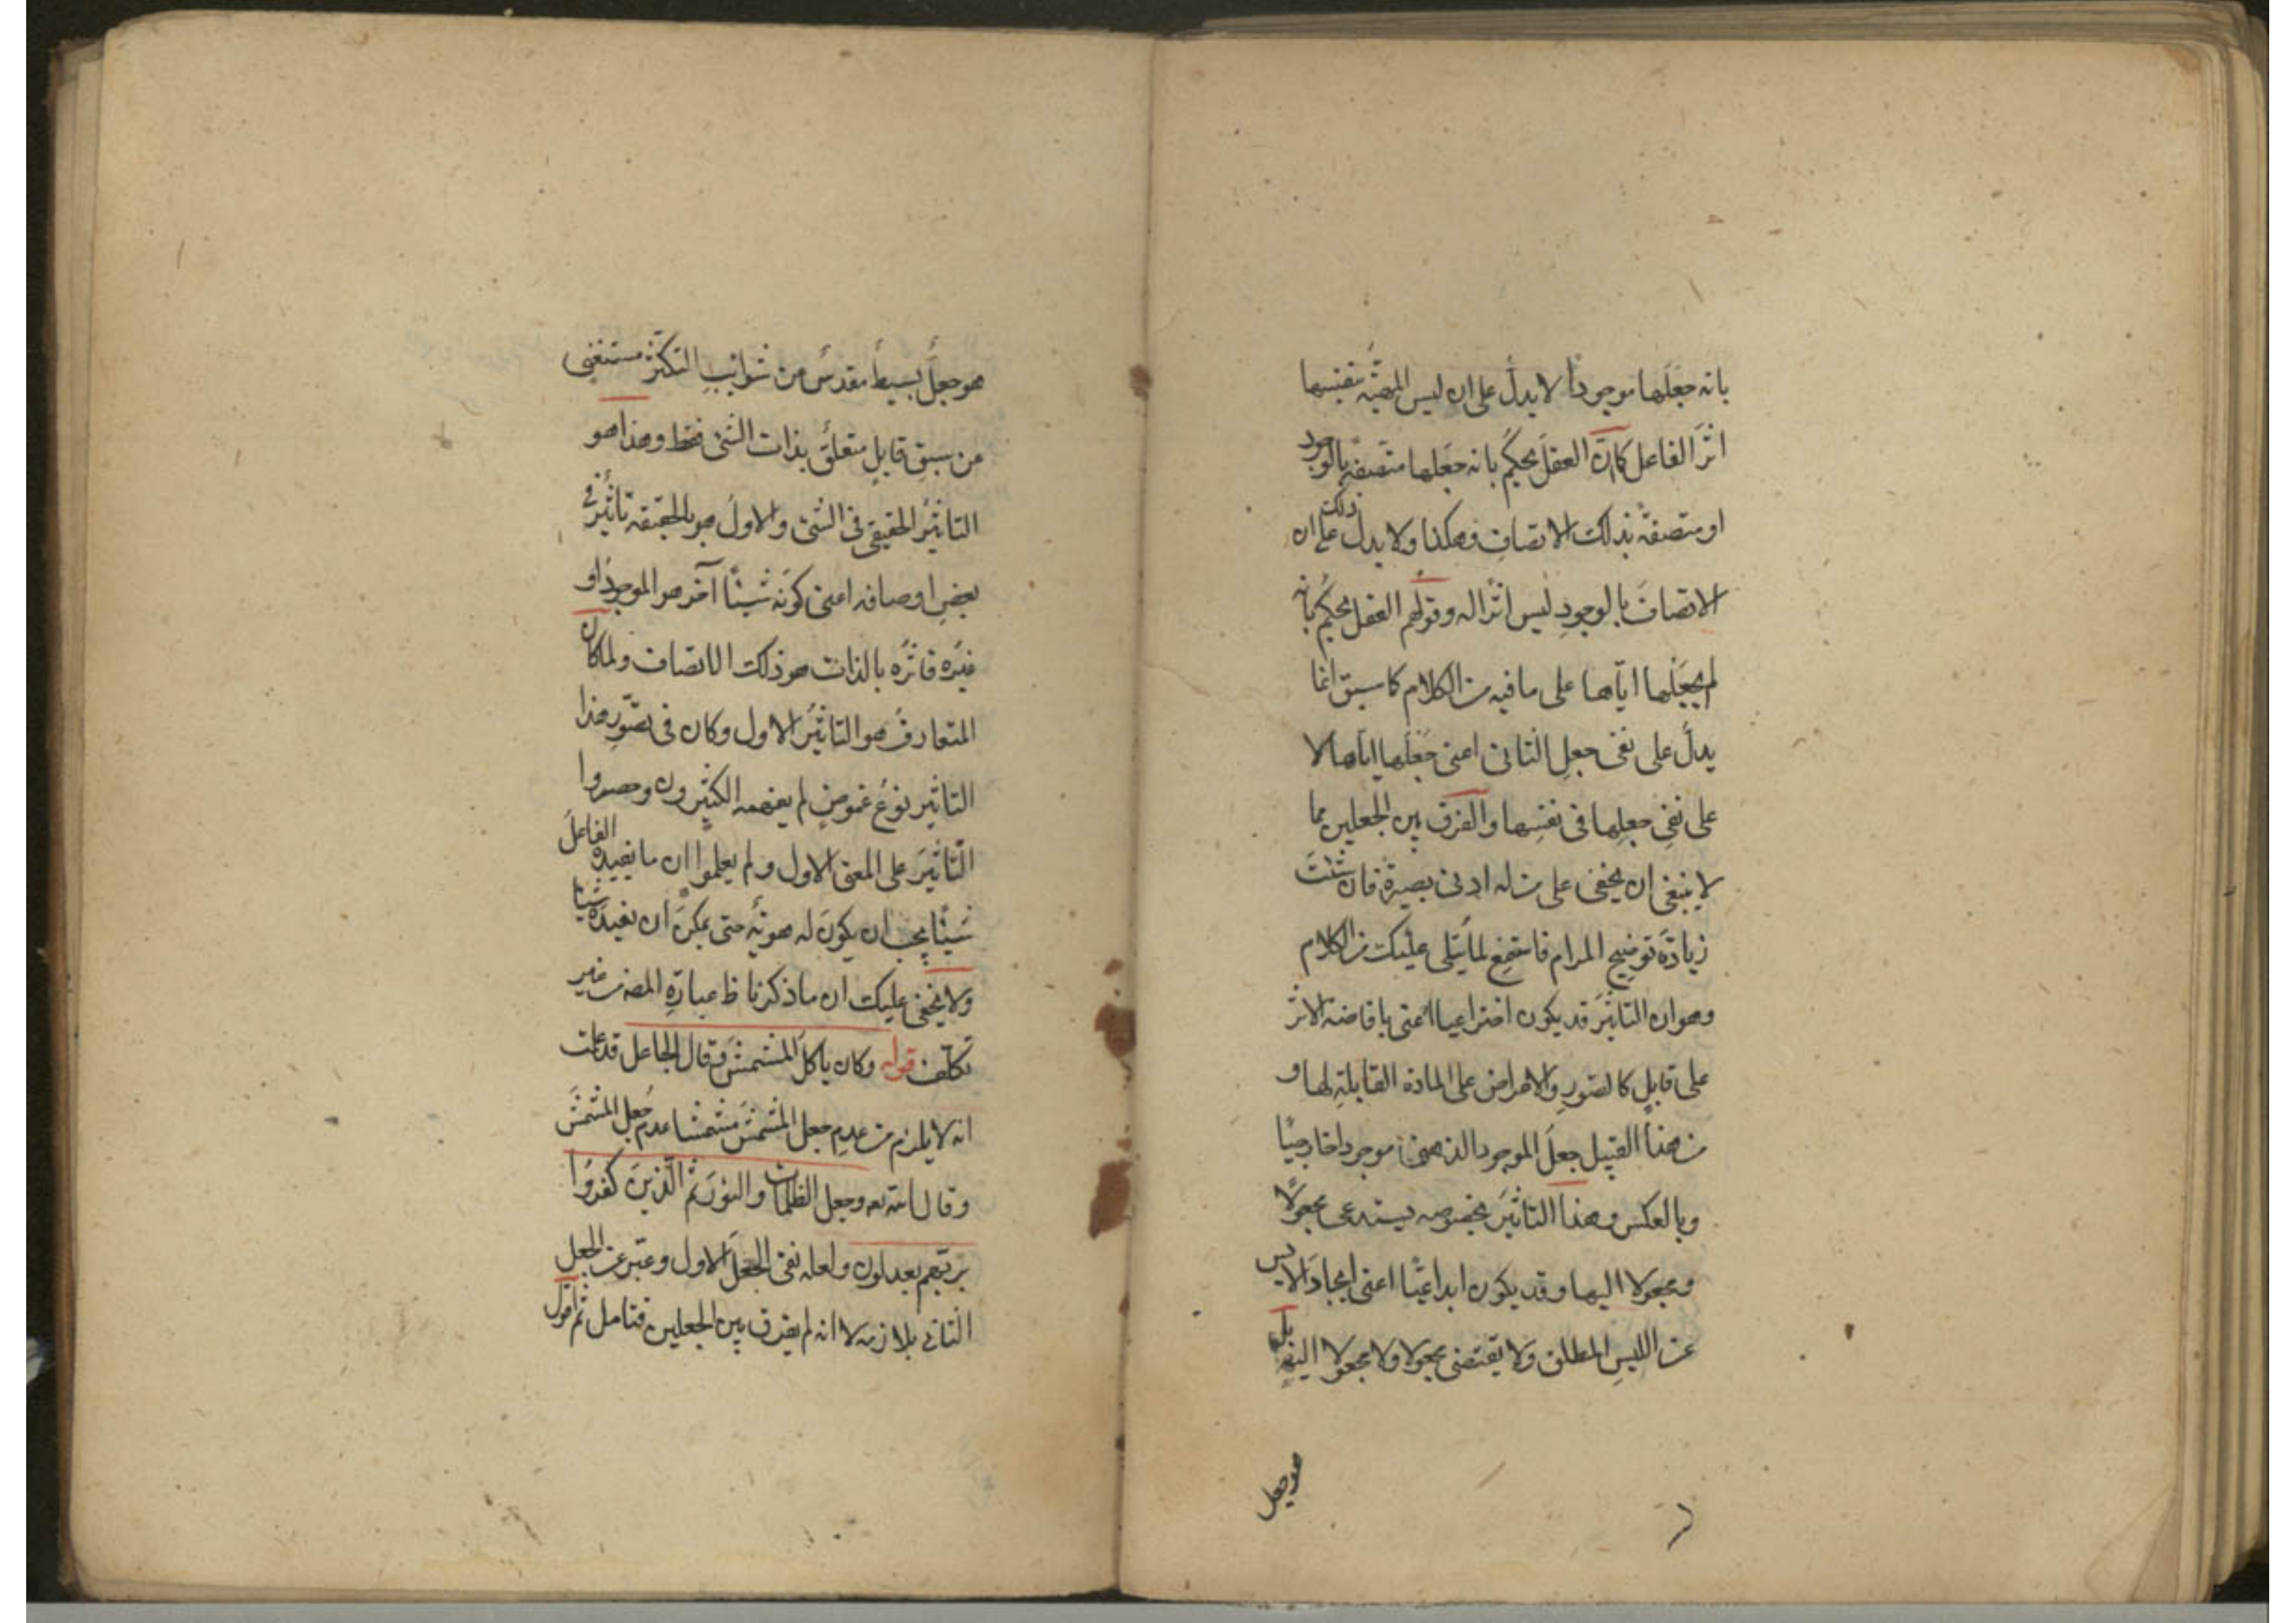 بانه جعلها موجودا لا يدل على ان ليس المهية بنفسها
اثر الفاعل كما ان العقل يحكم بانه جعلها متصفة بالوجود
او متصفة بذلك الاتصاف وهكذا ولا يدل ذلك على ان
الاتصاف بالوجود ليس اثرا له وقولهم العقل يحكم بانه
لم يجعلها اياها على ما فيه من الكلام كما سبق انما
يدل على نفى جعل الثانى اعنى جعلها اياها لا
على نفى جعلها فى نفسها والفرق بين الجعلين مما
لا ينبغى ان يخفى على من له ادنى بصيرة فان شئت
زيادة توضيح المرام فاستمع لما يتلى عليك من الكلام
وهو ان التاثير قد يكون اختراعيا اعنى بافاضة الاثر
على قابل كالصور والاعراض على المادة القابلة لها و
من هذا القبيل جعل الموجود الذهنى موجودا خارجيا
وبالعكس وهذا التاثير بخصوصه يستدعى مجعولا
ومجعولا اليها وقد يكون ابداعيا اعنى ايجاد الايس
عن الليس المطلق ولا يقتضى مجعولا ولا مجعولا اليه بل
هو جعل
هو جعل بسيط مقدس من شوائب التكثر مستغنى
من سبق قابل متعلق بذات الشئ فقط وهذا هو
التاثير الحقيقى فى الشئ والاول هو بالحقيقة تاثير فى
بعض اوصافه اعنى كونه شيئا آخر هو الموجود او
غيره فاثره بالذات هو ذلك الاتصاف ولما كان
المتعارف هو التاثير الاول وكان فى تصور هذا
التاثير نوع غموض لم يفهمه الكثيرون وحصروا
التاثير على المعنى الاول ولم يعلموا ان ما يفيده الفاعل
شيئا يجب ان يكون له هوية حتى يمكن ان يفيده شيئا
ولا يخفى عليك ان ما ذكرنا ظ عبارة المصنف من غير
تكلف قوله وكان ياكل المشمش فقال الجاعل قد علمت
انه لا يلزم من عدم جعل المشمش مشمشا عدم جعل المشمش
وقال الله تعه وجعل الظلمات والنور ثم الذين كفروا
بربهم يعدلون ولعله نفى الجعل الاول وعبر عن الجعل
الثانى بلازمه لا انه لم يفرق بين الجعلين فتامل ثم اقول